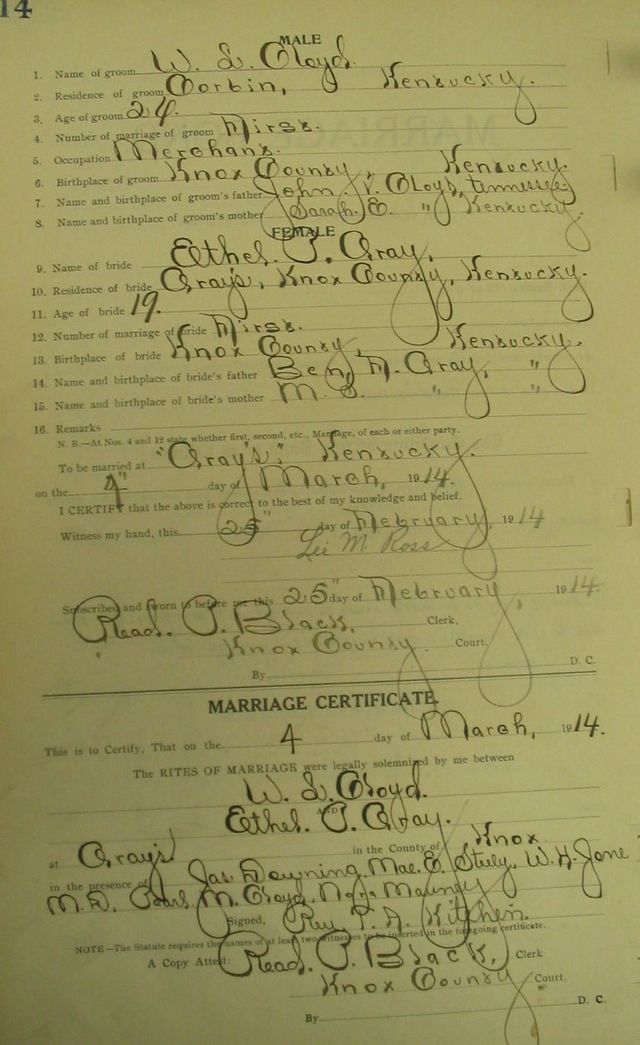 14
MALE
1. Name of groom W. L. Cloyd.
2. Residence of groom Corbin, Kentucky.
3. Age of groom 24.
4. Number of marriage of groom First.
5. Occupation Merchant.
6. Birthplace of groom Knox County, Kentucky.
7. Name and birthplace of groom's father John Cloyd, Tennessee
8. Name and birthplace of groom's mother Sarah E. " Kentucky.
FEMALE
9. Name of bride Ethel. P. Gray.
10. Residence of bride Grays, Knox County, Kentucky.
11. Age of bride 19.
12. Number of marriage of bride First.
13. Birthplace of bride Knox County, Kentucky.
14. Name and birthplace of bride's father Ben, F. Gray, "
15. Name and birthplace of bride's mother M. " "
16. Remarks
N. B.—At Nos. 4 and 12 state whether first, second, etc., Marriage, of each or either party.
To be married at "Gray's" Kentucky.
on the 4" day of March, 1914.
I CERTIFY that the above is correct to the best of my knowledge and belief.
Witness my hand, this 25" day of February, 1914
Lei M. Ross
Subscribed and sworn to before me this 25" day of February, 1914.
Read. P. Black, Clerk,
Knox County. Court.
By D. C.
MARRIAGE CERTIFICATE.
This is to Certify, That on the 4 day of March, 1914.
The RITES OF MARRIAGE were legally solemnized by me between
W. L. Cloyd.
AND
Ethel. P. Gray.
at Grays in the County of Knox
in the presence of Jas. Downing, Mae. E. Steely, W. H. Jone
M. D, Pearl M. Cloyd,
Signed, Rev P. A. Kitchen.
NOTE—The Statute requires the names of at least two witnesses to be inserted in the foregoing certificate.
A Copy Attest: Read. P. Black, Clerk
Knox County Court,
By D. C.